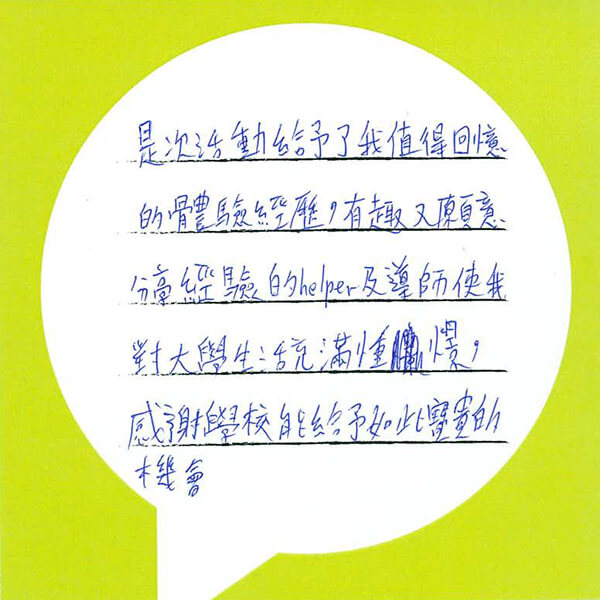 是次活動給予了我值得回憶
的體驗經歷，有趣又願意
分享經驗的helper及導師使我
對大學生活充滿憧憬，
感謝學校能給予如此寶貴的
機會